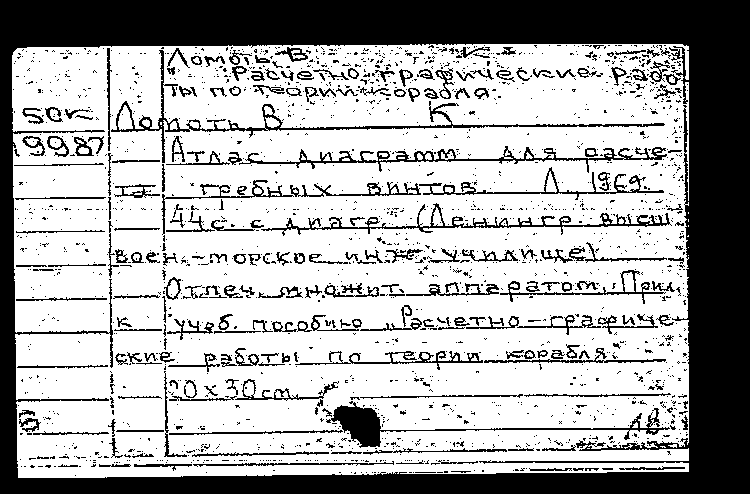 Ломоть, В
" Расчетно-графические рабо
ты по теории корабля.
50К Ломоть, В К
19987 Атлас диаграмм для расче-
та гребных винтов. Л., 1969.
44с. с диагр. (Ленингр. высш
воен.-морское инж. училище).
Отпеч. множит. аппаратом. Прил.
к учеб. пособию „Расчетно-графиче-
ские работы по теории корабля."
20х30см.